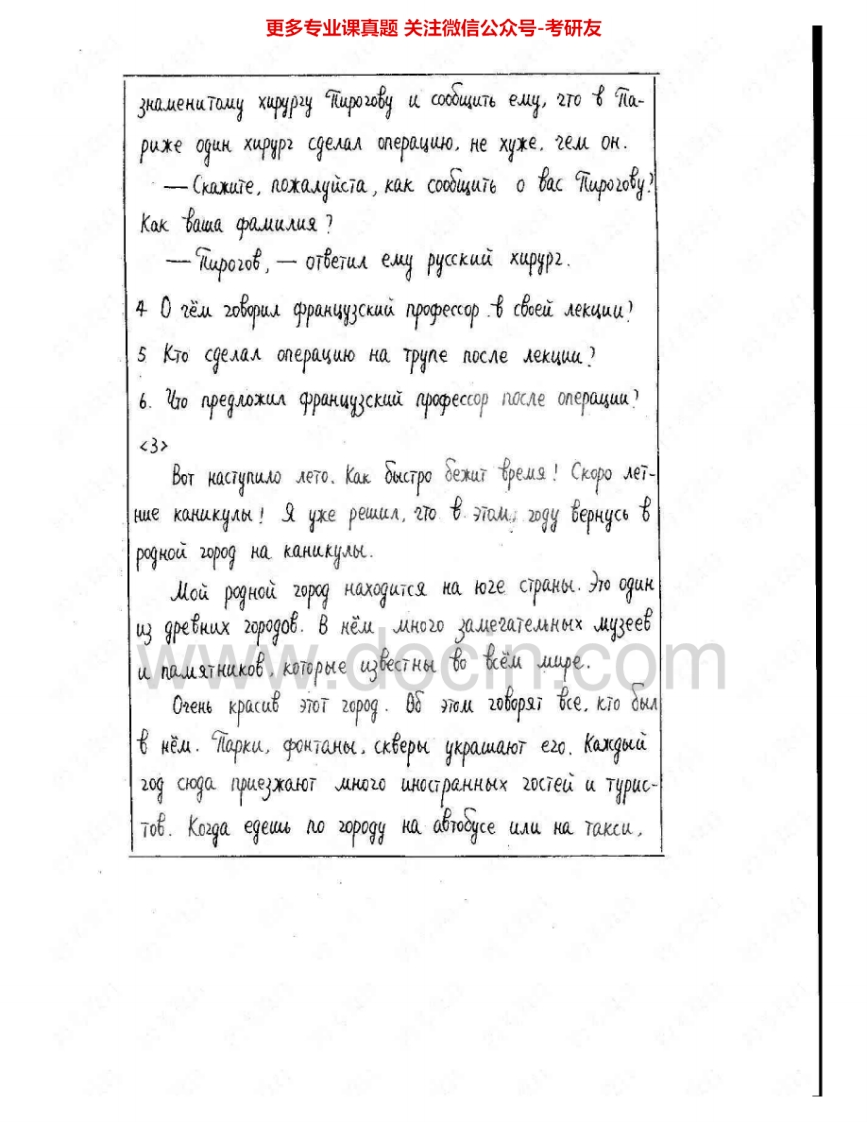 更多专业课真题 关注微信公众号-考研友
знаменитому хирургу Пирогову и сообщить ему, что в Па-
риже один хирург сделал операцию, не хуже, чем он.
— Скажите, пожалуйста, как сообщить о вас Пирогову?
Как ваша фамилия?
— Пирогов, — ответил ему русский хирург.
4 О чём говорил французский профессор в своей лекции?
5 Кто сделал операцию на трупе после лекции?
6. Что предложил французский профессор после операции?
<3>
Вот наступило лето. Как быстро бежит время! Скоро лет-
ние каникулы! Я уже решил, что в этом году вернусь в
родной город на каникулы.
Мой родной город находится на юге страны. Это один
из древних городов. В нём много замечательных музеев
и памятников, которые известны во всём мире.
www.docin.com
Очень красив этот город. Об этом говорят все, кто был
в нём. Парки, фонтаны, скверы украшают его. Каждый
год сюда приезжают много иностранных гостей и турис-
тов. Когда едешь по городу на автобусе или на такси,